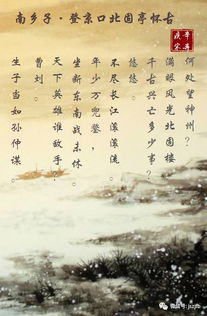 南乡子·登京口北固亭怀古
何处望神州？
满眼风光北固楼
千古兴亡多少事？
悠悠。
不尽长江滚滚流。
年少万兜鍪，
坐断东南战未休。
天下英雄谁敌手？
曹刘。
生子当如孙仲谋。